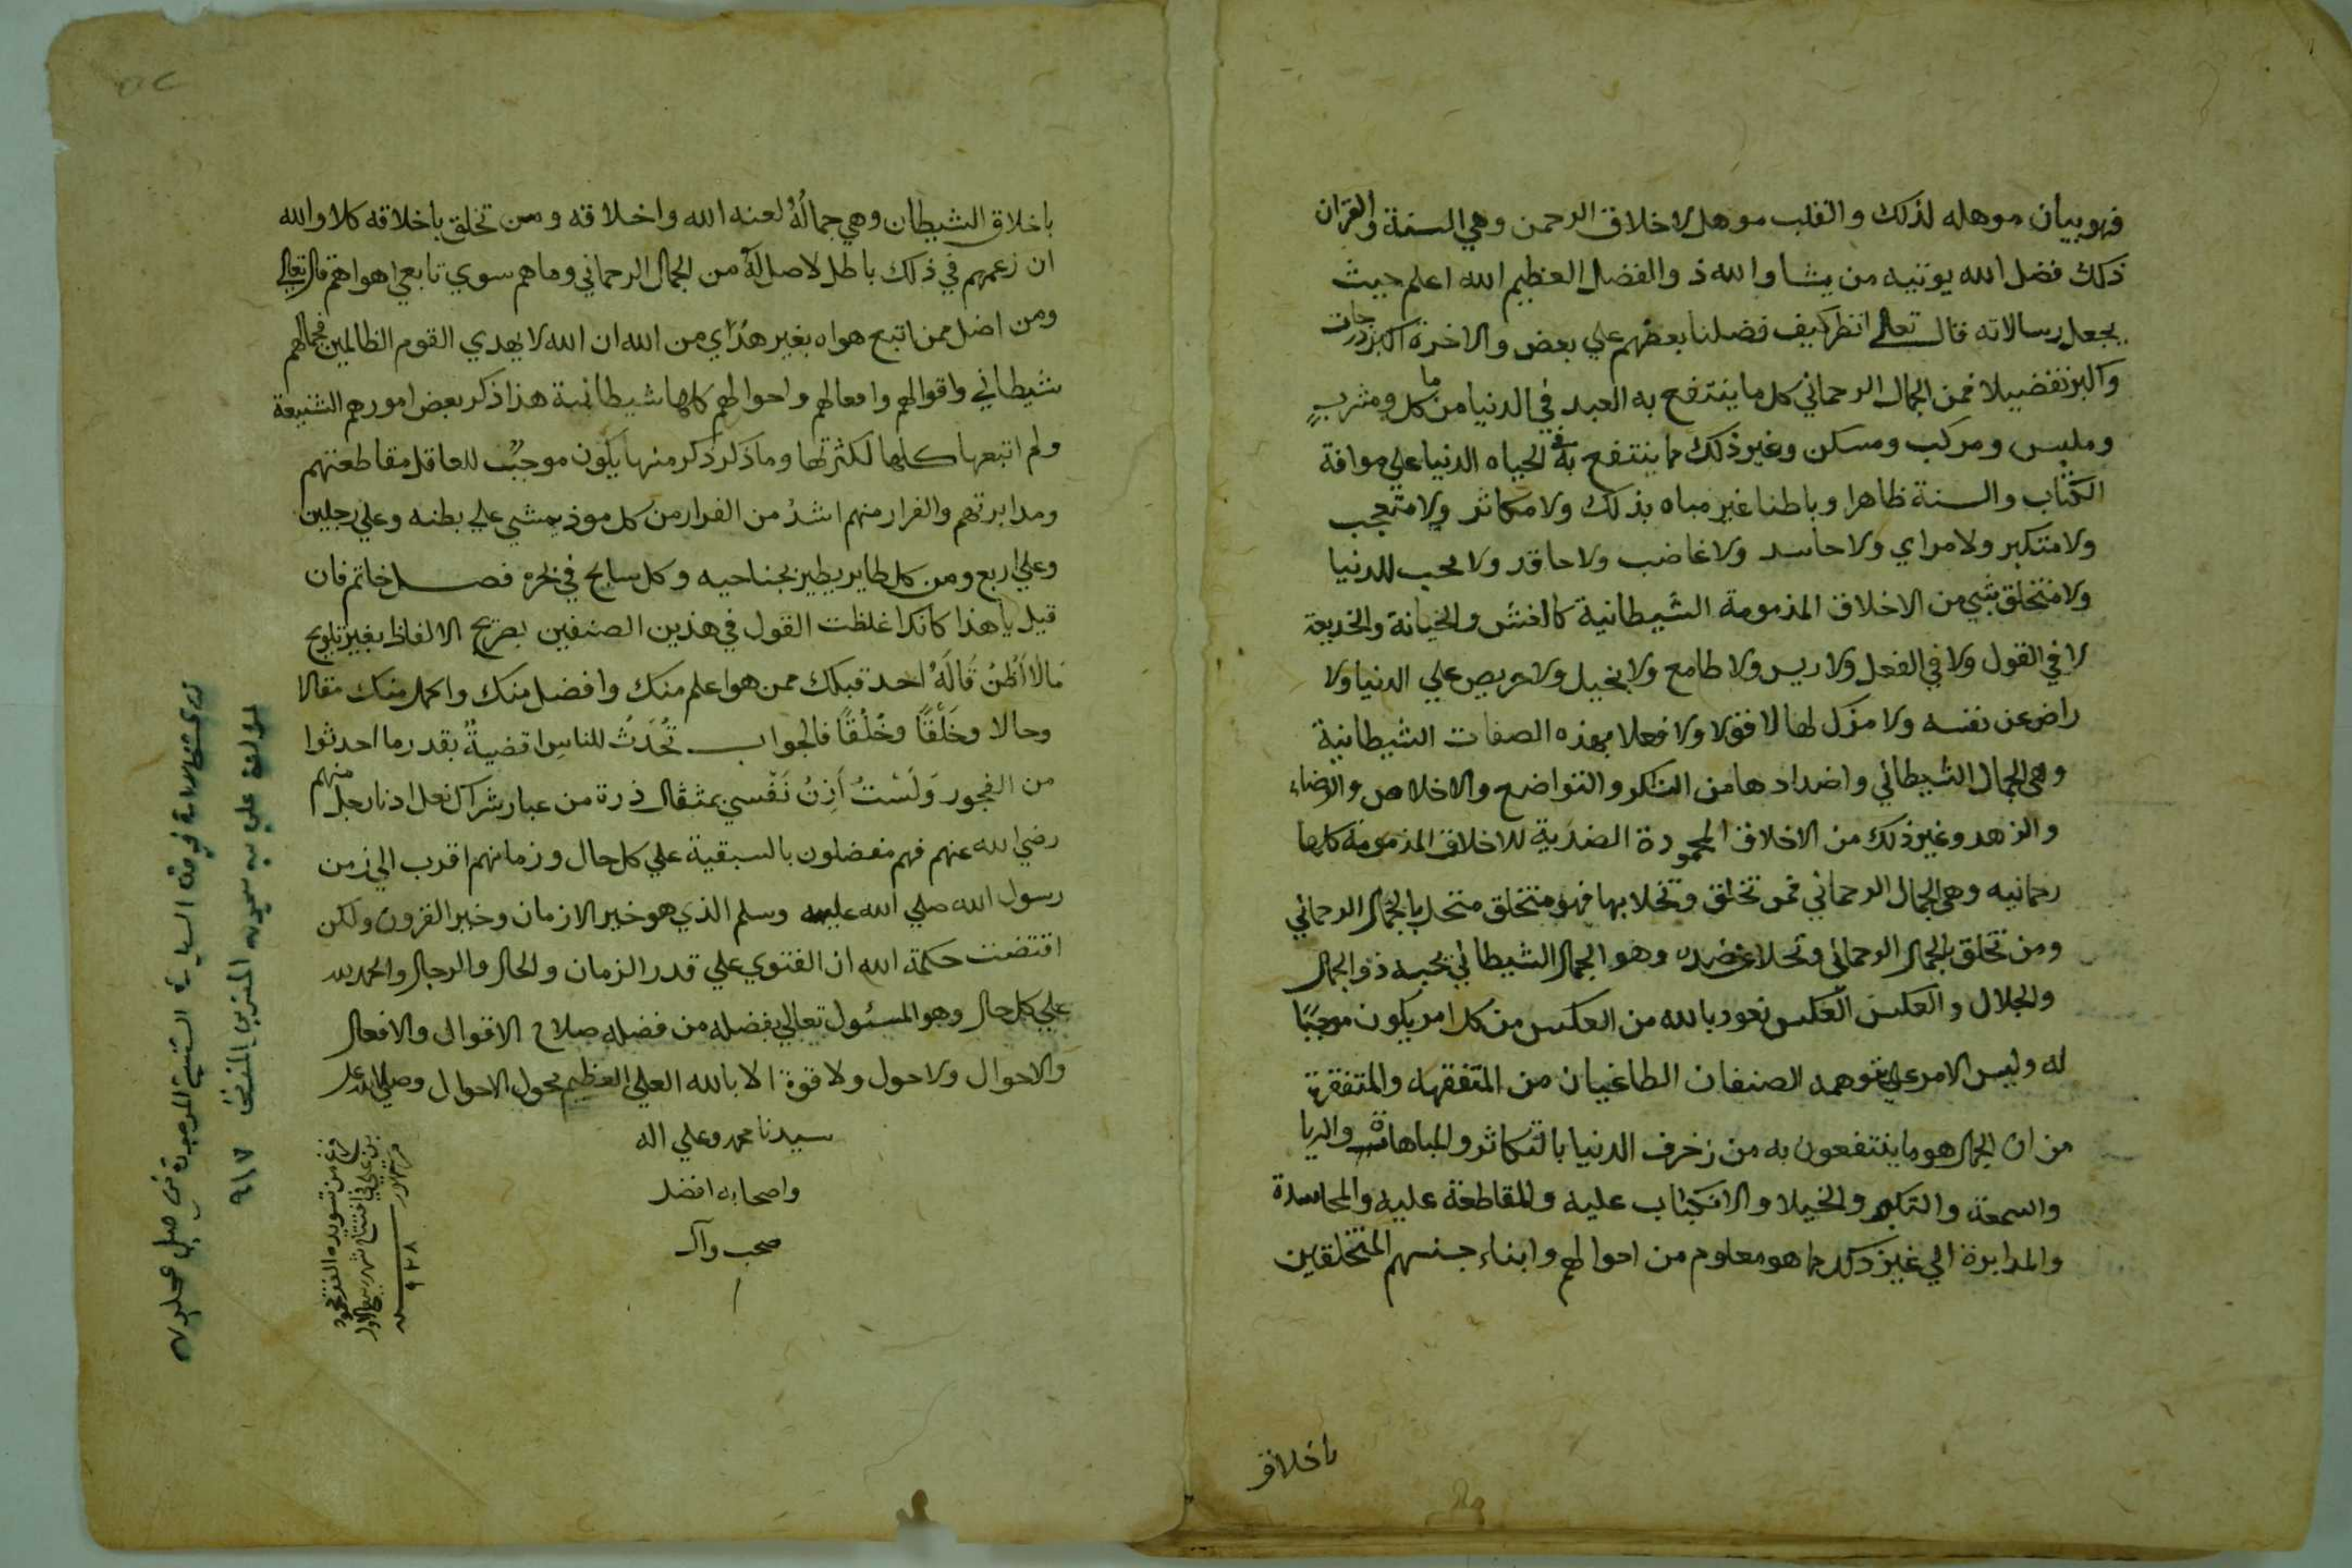 فهو بيان موهله لذلك والقلب موهل لاخلاق الرحمن وهي السنة والقران
ذلك فضل الله يوتيه من يشا والله ذو الفضل العظيم الله اعلم حيث
يجعل رسالاته قال تعالى انظر كيف فضلنا بعضهم علي بعض والاخرة اكبر درجات
واكبر تفضيلا فمن الجمال الرحماني كل ما ينتفع به العبد في الدنيا من ماكل ومشرب
وملبس ومركب ومسكن وغير ذلك مما ينتفع به في الحياه الدنيا علي موافة
الكتاب والسنة ظاهرا وباطنا غير مباه بذلك ولا مكاثر ولا متعجب
ولا متكبر ولا مراي ولا حاسد ولا غاضب ولا حاقد ولا محب للدنيا
ولا متخلق بشي من الاخلاق المذمومة الشيطانية كالغش والخيانة والخديعة
لا في القول ولا في الفعل ولا ريس ولا طامع ولا بخيل ولا حريص علي الدنيا ولا
راض عن نفسه ولا مزكل لها لا قولا ولا فعلا بهذه الصفات الشيطانية
وهي الجمال الشيطاني واضدادها من الشكر والتواضع والاخلاص والرضاء
والزهد وغير ذلك من الاخلاق المحمودة الضدية للاخلاق المذمومة كلها
رحمانيه وهي الجمال الرحماني فمن تخلق وتحلا بها فهو متخلق متحل بالجمال الرحماني
ومن تخلق بالجمال الرحماني وتحلا عن ضده وهو الجمال الشيطاني يحبه ذو الجمال
والجلال والعكس العكس نعود بالله من العكس من كل امر يكون موجبًا
له وليس الامر علي توهمه الصنفان الطاغيان من المتفقهه والمتفقرة
من ان الجمال هو ما ينتفعون به من زخرف الدنيا بالتكاثر والمباهاة والريا
والسمعة والتكبر والخيلا والانكباب عليه والمقاطعة عليه والمحاسدة
والمدابرة الي غير ذلك مما هو معلوم من احوالهم وابناء جنسهم المتخلقين
باخلاق
باخلاق الشيطان وهي جمالهُ لعنه الله واخلاقه ومن تخلق باخلاقه كلا والله
ان زعمهم في ذلك باطل لا اصل له من الجمال الرحماني وما هم سوي تابعي اهواهم قال تعالى
ومن اضل ممن اتبع هواه بغير هدًاي من الله ان الله لا يهدي القوم الظالمين فجمالهم
شيطاني واقوالهم وافعالهم واحوالهم كلها شيطانية هذا ذكر بعض امورهم الشنيعة
ولم اتبعها كلها لكثرتها وما ذكر ذكر منها يكون موجبٌ للعاقل مقاطعتهم
ومدابرتهم والفرار منهم اشدُ من الفرار من كل موذ يمشي علي بطنه وعلي رجلين
وعلي اربع ومن كل طاير يطير بجناحيه وكل سابح في بحره فصل خاتم فان
قيل يا هذا كانك اغلظت القول في هذين الصنفين بصريح الالفاظ بغير تلويح
مَالا أَظُنُ قَالَهُ احد قبلك ممن هو اعلم منك وافضل منك واكمل منك مقالا
وحالا وخَلْقًا وخُلُقًا فالجواب تُحْدَثُ للناسِ اقضيةٌ بقدر ما احدثوا
من الفجور وَلَسْتُ أَزِنُ نَفْسي بمثقال ذرة من غبار شراك نعل ادنا رجل منهم
رضي الله عنهم فهم مفضلون بالسبقية علي كل حال وزمانهم اقرب الي زمن
رسول الله صلي الله عليه وسلم الذي هو خير الازمان وخير القرون ولكن
اقتضت حكمة الله ان الفتوي علي قدر الزمان والحال والرجال والحمد لله
علي كل حال وهو المسئول تعالي بفضله من فضله صلاح الاقوال والافعال
والاحوال ولا حول ولا قوة الا بالله العلي العظيم محول الاحوال وصلي الله على
سيدنا محمد وعلي اله
واصحابه افضل
صحب وآل
فرغ من تسويده الفقير محمود
بن علي في افتتاح شهر ربيع الاول
٩٢٨
لمولفه علي بن ميمون المغربي المتوفى ٩١٧